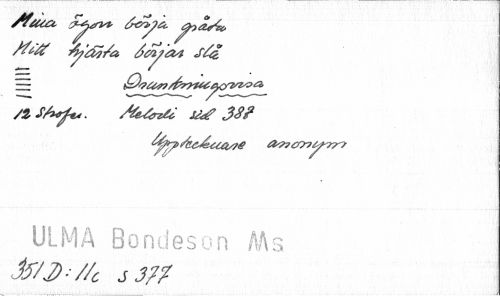 Mina ögon börja gråta
Mitt hjärta börjar slå
Drunkningsvisa
12 Strofer. Melodi sid 387
Upptecknare anonym
ULMA Bondeson Ms
351 D:11c s 377